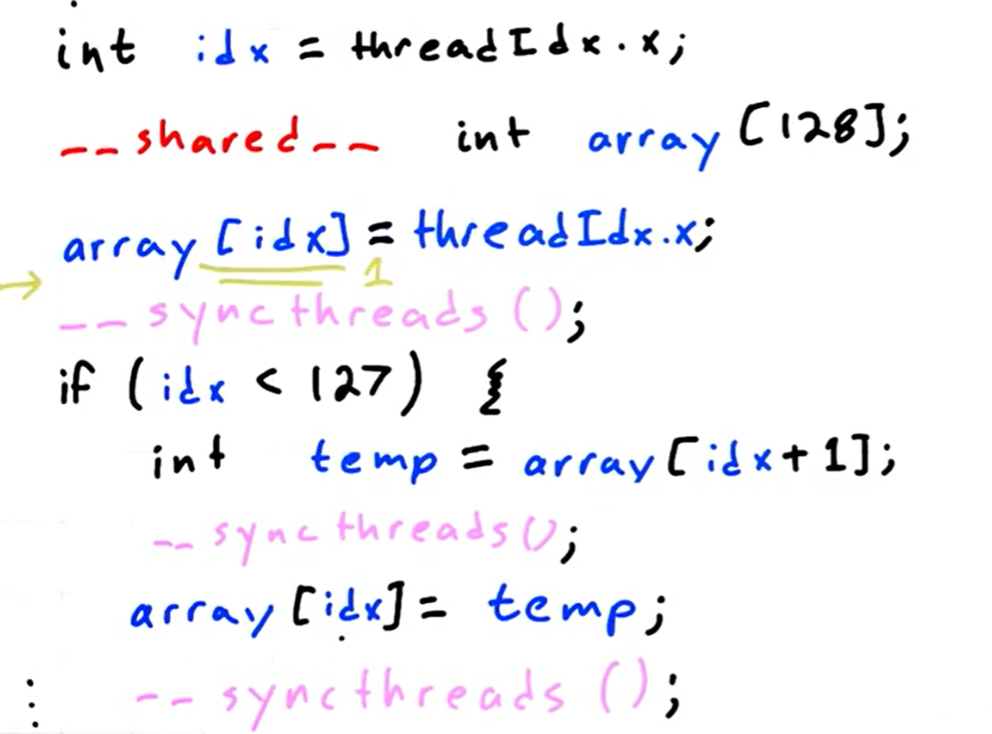 int idx = threadIdx.x;
__shared__ int array [128];
array [idx] = threadIdx.x;
1
__syncthreads ();
if (idx < 127) {
int temp = array [idx+1];
__syncthreads();
array [idx] = temp;
__syncthreads ();